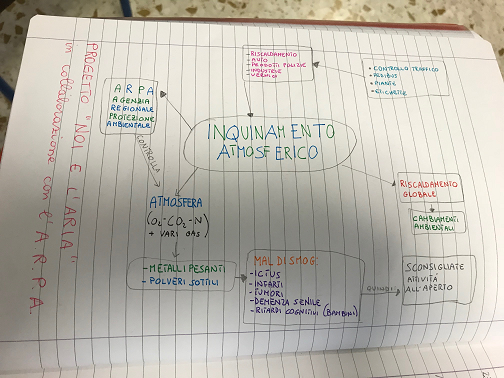 PROGETTO "NOI E L'ARIA"
in collaborazione con l'A.R.P.A.
A R P A
AGENZIA
REGIONALE
PROTEZIONE
AMBIENTALE
-RISCALDAMENTO
-AUTO
-PRODOTTI PULIZIE
-INDUSTRIE
-VERNICI
• CONTROLLO TRAFFICO
• PIANTE
INQUINAMENTO
ATMOSFERICO
CONTROLLA
ATMOSFERA
(O₂-CO₂-N
+ VARI GAS)
RISCALDAMENTO
GLOBALE
CAMBIAMENTI
AMBIENTALI
-METALLI PESANTI
-POLVERI SOTTILI
MAL DI SMOG:
-ICTUS
-INFARTI
-TUMORI
-DEMENZA SENILE
-RITARDI COGNITIVI (BAMBINI)
QUINDI
SCONSIGLIATE
ATTIVITÀ
ALL'APERTO